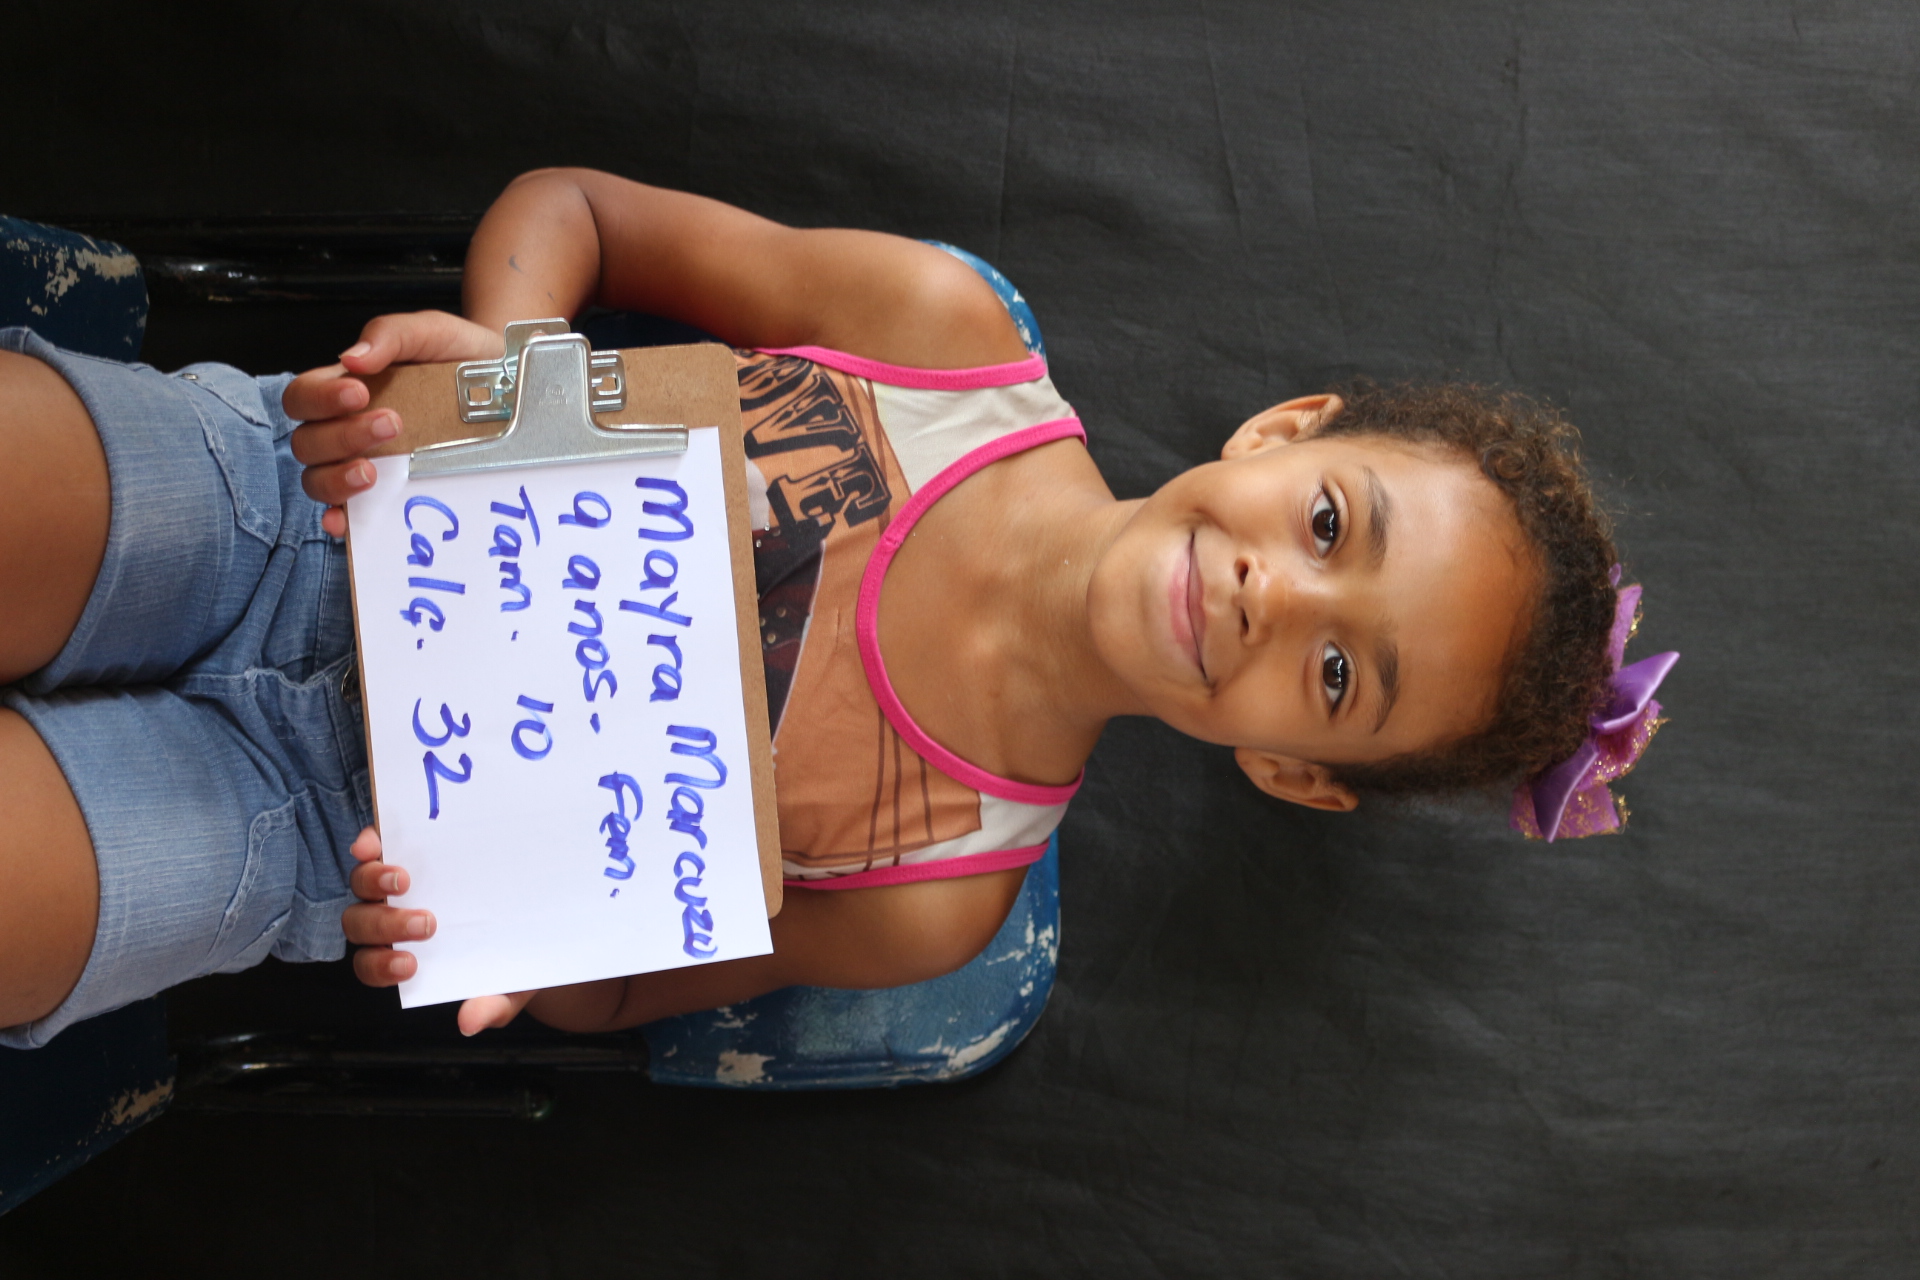 OVE
Mayra Marcuzo
9 anos. Fem.
Tam. 10
Calç. 32